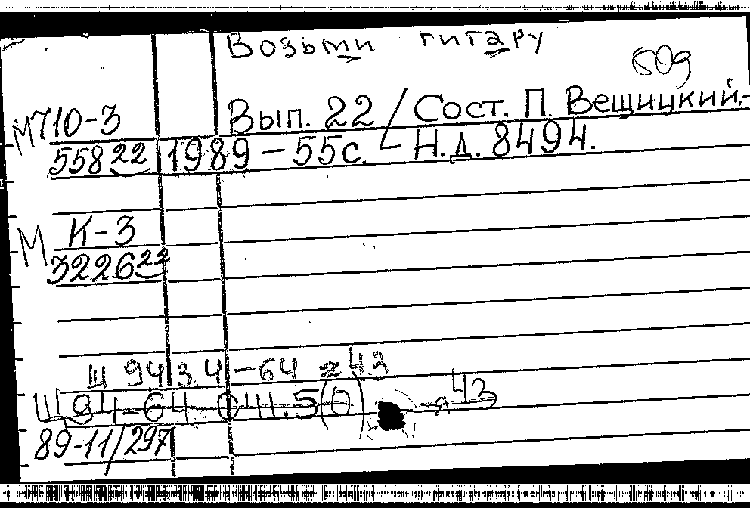 Возьми гитару
509
М710-3 Вып. 22 / Сост. П. Вещицкий.-
55822 1989 - 55с. - Н.Д. 8494.
М К-3
3226 22
Щ 943.4-64 я43
Щ 94-64.041.5(0) -я43
89-11/297